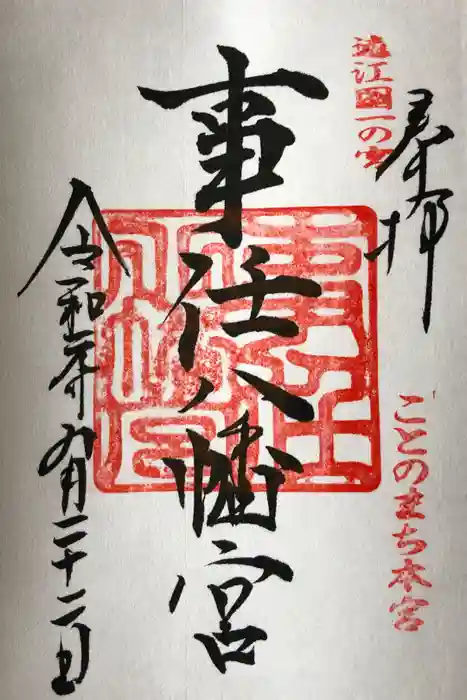 奉拝
遠江國一の宮
ことのまち本宮
事任八幡宮
令和元年九月二十二日